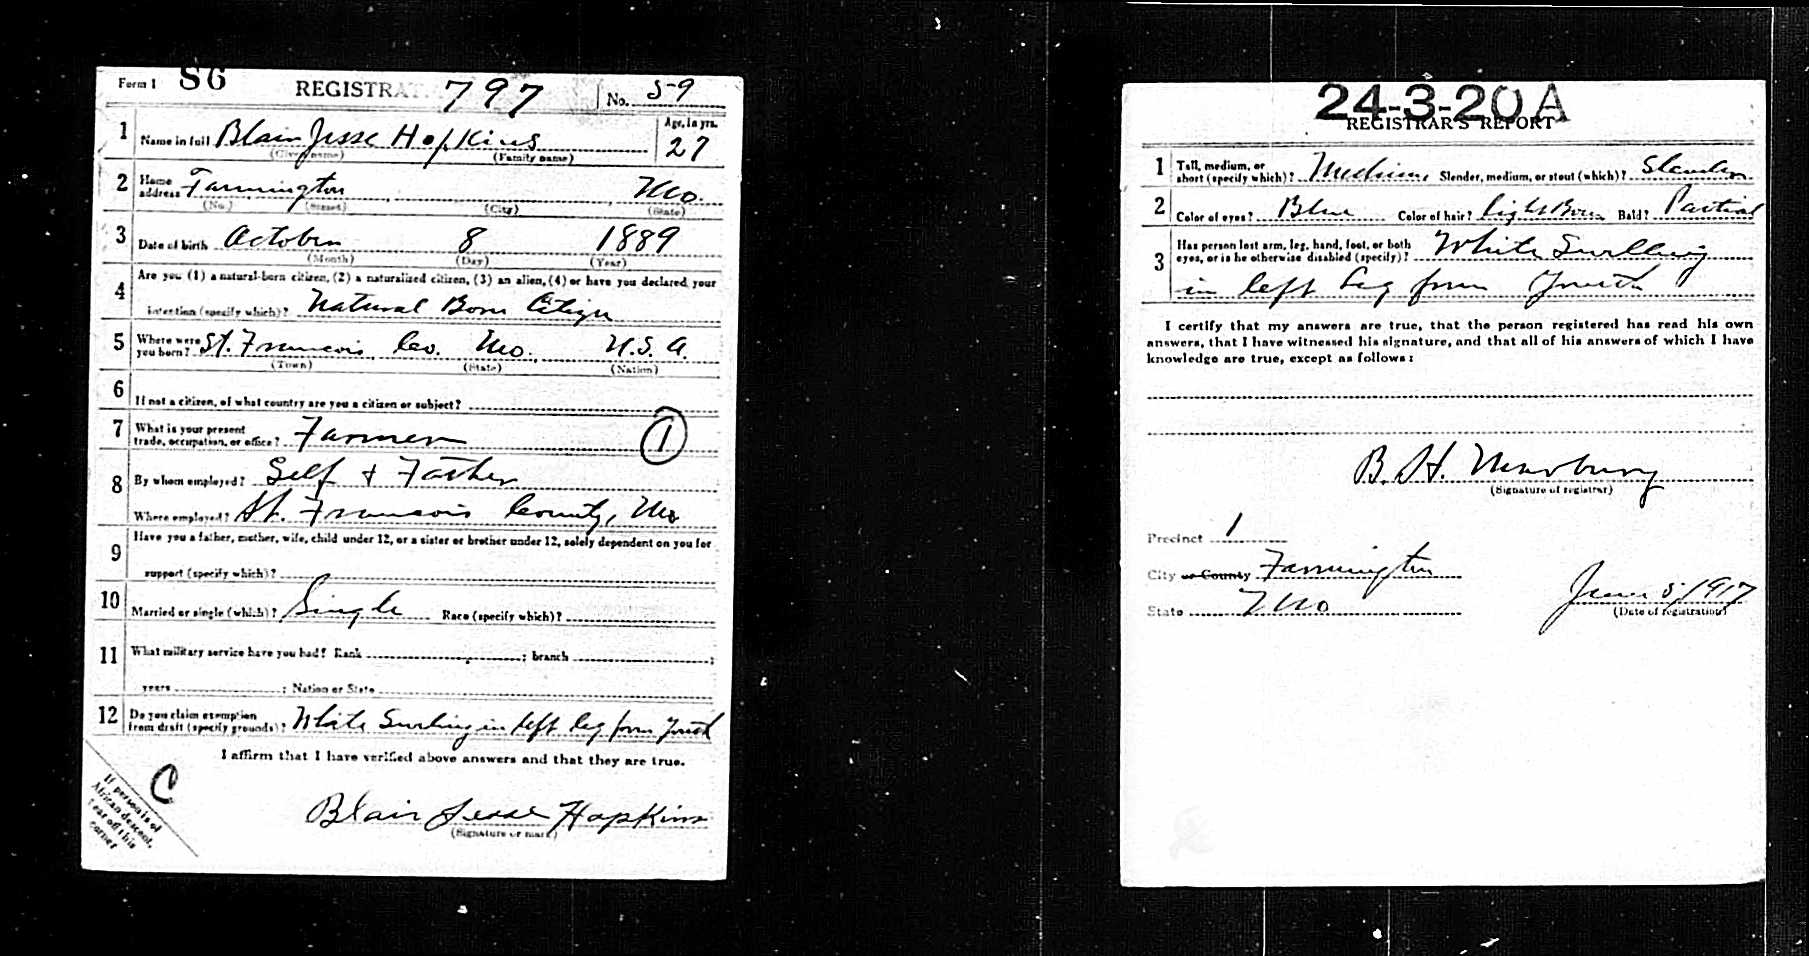 Form 1 86 REGISTRAT 797 No. 59
1 Name in full Blair Jesse Hopkins Age, in yrs. 27
(Given name) (Family name)
2 Home address Farmington Mo.
(No.) (Street) (City) (State)
3 Date of birth October 8 1889
(Month) (Day) (Year)
4 Are you (1) a natural-born citizen, (2) a naturalized citizen, (3) an alien, (4) or have you declared your
intention (specify which)? Natural Born Citizen
5 Where were you born? St. Francois Co. Mo. U.S.A.
(Town) (State) (Nation)
6 If not a citizen, of what country are you a citizen or subject?
7 What is your present trade, occupation, or office? Farmer 1
8 By whom employed? Self + Father
Where employed? St. Francois County, Mo
9 Have you a father, mother, wife, child under 12, or a sister or brother under 12, solely dependent on you for
support (specify which)?
10 Married or single (which)? Single Race (specify which)?
11 What military service have you had? Rank ; branch ;
years ; Nation or State
12 Do you claim exemption from draft (specify grounds)? White Swelling in left leg from Youth
I affirm that I have verified above answers and that they are true.
C
If person is of
African descent,
tear off this
corner
Blair Jesse Hopkins
(Signature or mark)
24-3-20 A
REGISTRAR'S REPORT
1 Tall, medium, or short (specify which)? Medium Slender, medium, or stout (which)? Slender
2 Color of eyes? Blue Color of hair? Light Brown Bald? Partial
3 Has person lost arm, leg, hand, foot, or both eyes, or is he otherwise disabled (specify)? White Swelling
in left Leg from Youth
I certify that my answers are true, that the person registered has read his own
answers, that I have witnessed his signature, and that all of his answers of which I have
knowledge are true, except as follows:
B. H. Marbury
(Signature of registrar)
Precinct 1
City or County Farmington
State Mo
June 5, 1917
(Date of registration)